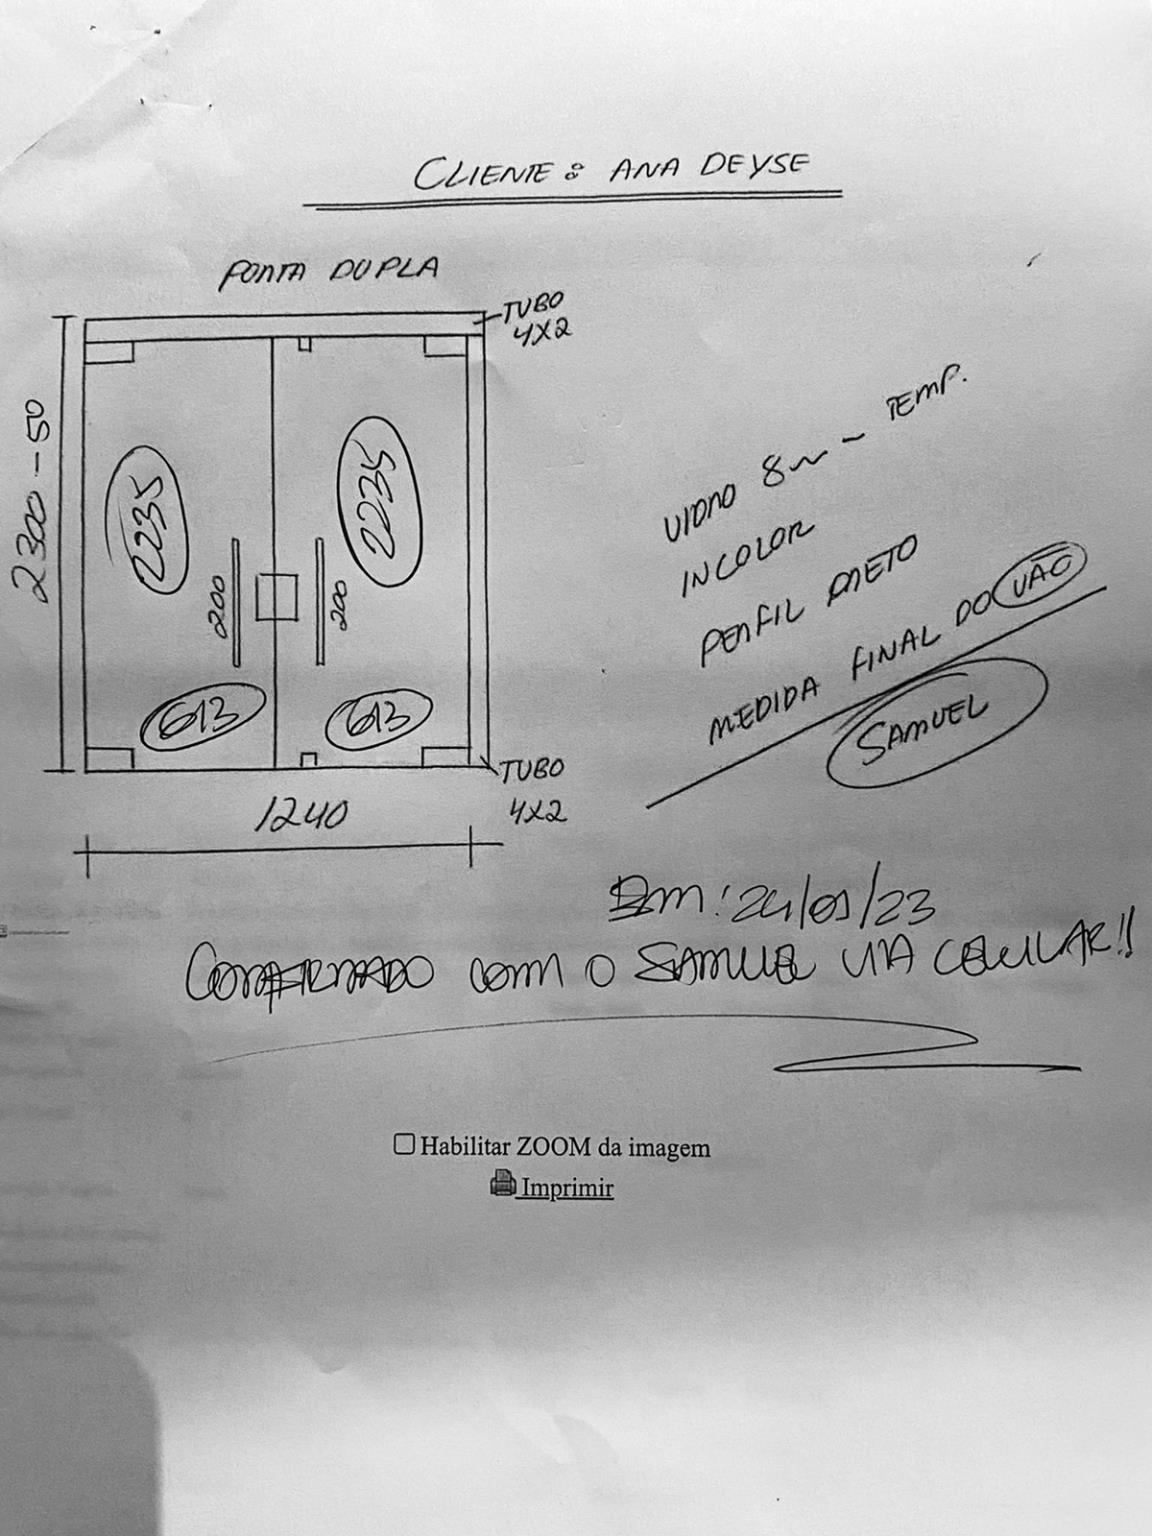 CLIENTE: ANA DEYSE
PORTA DUPLA
TUBO
4X2
2300-50
2235
2235
200
200
613
613
TUBO
4X2
1240
VIDRO 8m - TEMP.
INCOLOR
PERFIL PRETO
MEDIDA FINAL DO VÃO
SAMUEL
EM: 24/01/23
CONFIRMADO COM O SAMUEL VIA CELULAR!!
Habilitar ZOOM da imagem
Imprimir